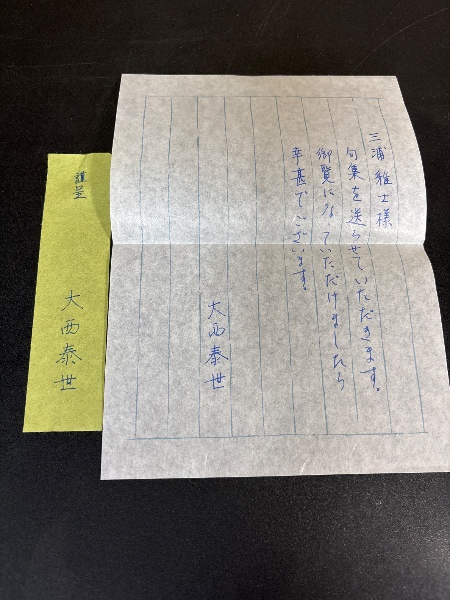 三浦雅士様
句集を送らせていただきます。
御覧になっていただけましたら
幸甚でございます。
大西泰世
謹呈
大西泰世